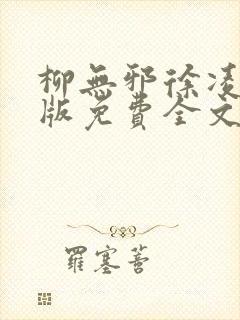 柳無邪徐凌
版免費全文
羅塞菩